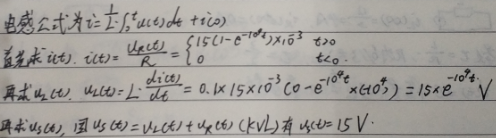 电感公式为 i = 1/L · ∫₀ᵗ u(t)dt + i(0)
首先求 i(t). i(t) = u_R(t)/R = { 15(1-e^{-10⁴t})×10⁻³ t>0
0 t<0.
再求 u_L(t). u_L(t) = L · di(t)/dt = 0.1×15×10⁻³ (0-e^{-10⁴t}×(-10⁴)) = 15×e^{-10⁴t} V
再求 u_S(t), 因 u_S(t) = u_L(t) + u_R(t) (KVL) 有 u_S(t) = 15V.